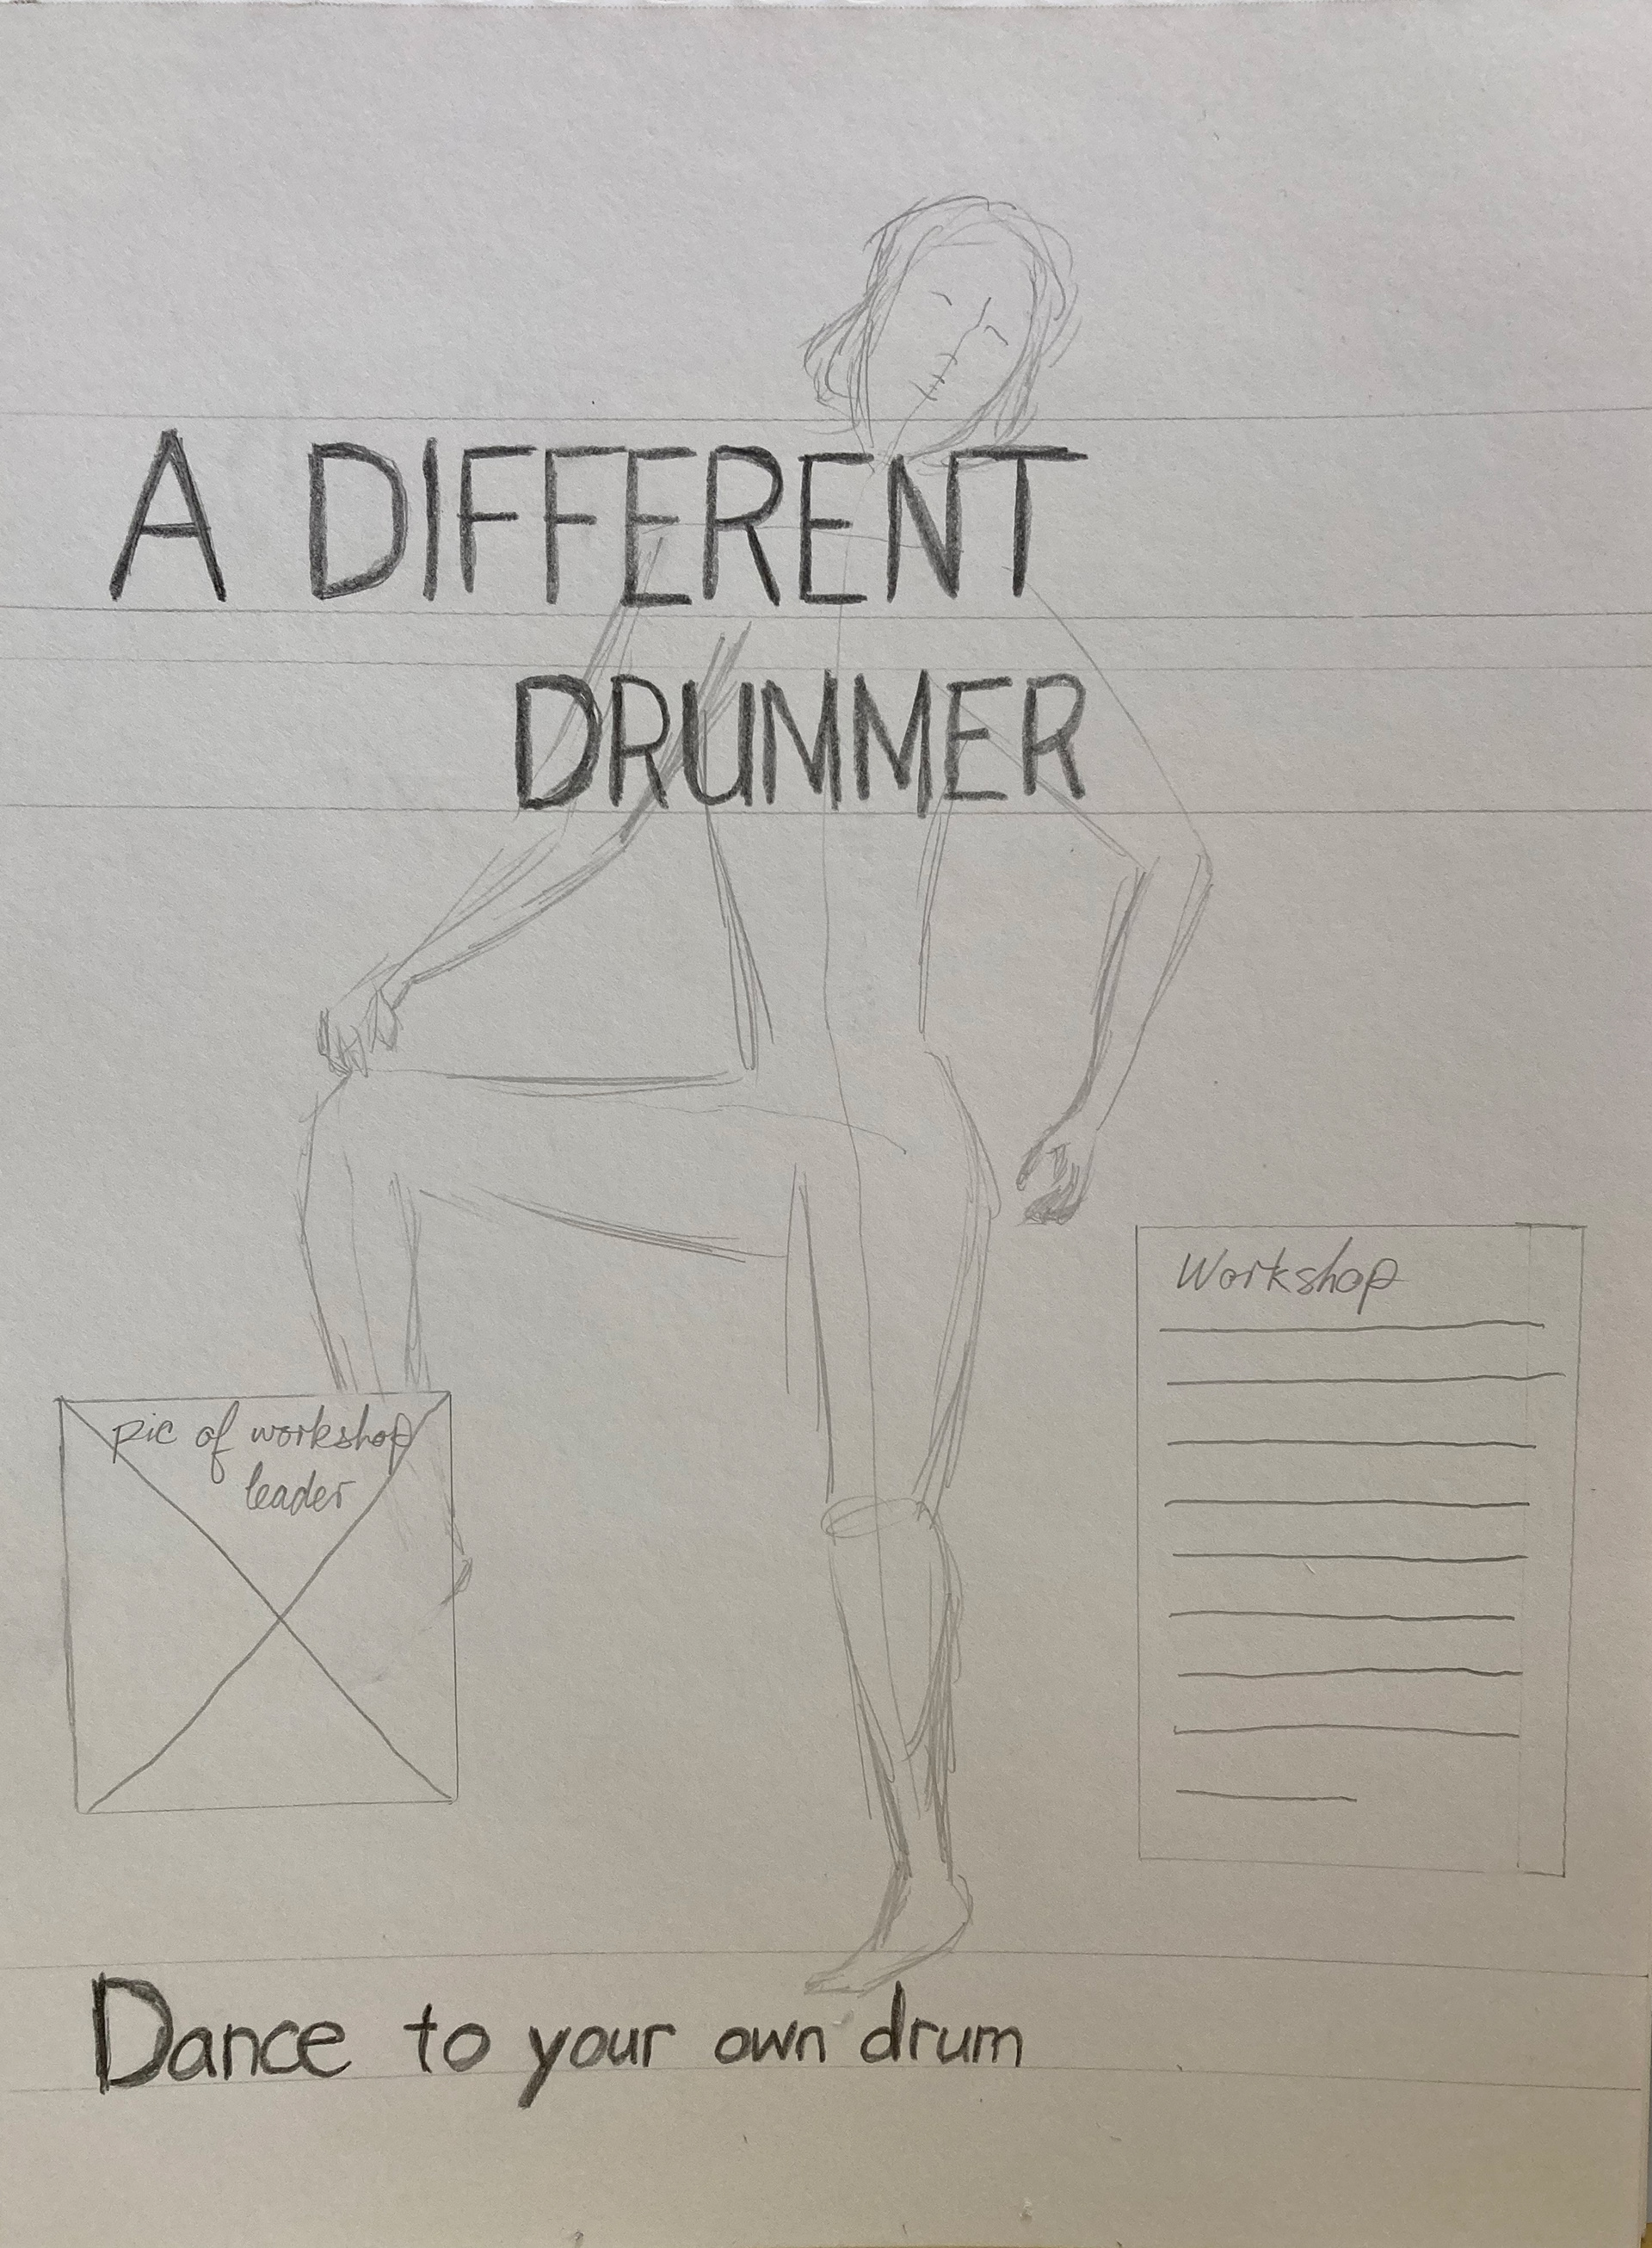 A DIFFERENT
DRUMMER
Workshop
pic of workshop
leader
Dance to your own drum